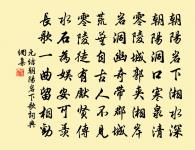 朝陽岩下湘水深
朝陽洞口寒泉清
零陵城郭夾湘岸
岩洞幽奇帶郡城
荒蕪自古人不見
零陵徒有先賢傳
水石為娛安可羨
長歌一曲留相勸
元結朝陽岩下歌詞典
網集